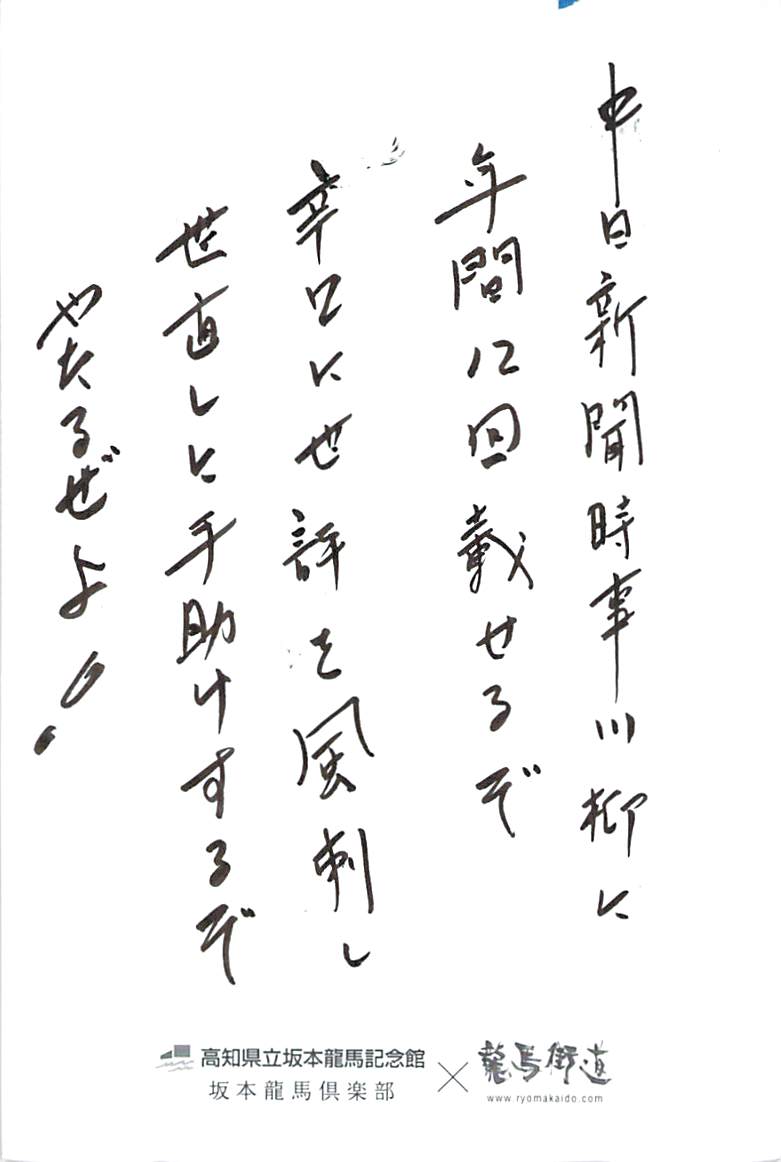 中日新聞時事川柳に
年間12回載せるぞ
辛口に世評を風刺し
世直しに手助けするぞ
やたるぜよ!
高知県立坂本龍馬記念館
坂本龍馬倶楽部
×
龍馬街道
www.ryomakaido.com